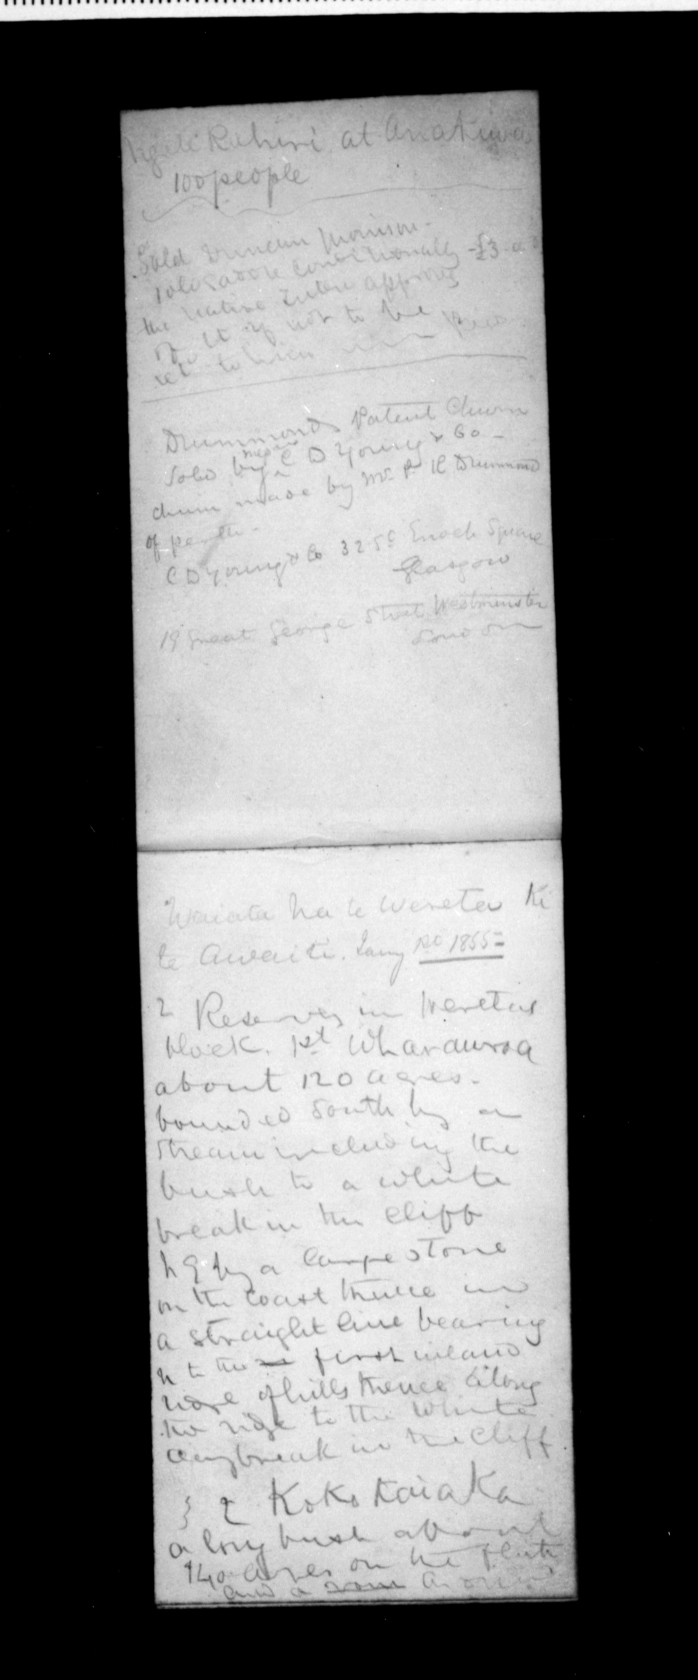 Ruhiri at Anakiwa
100 people
Sold Duncan Morison
conditionally £3
the native
of it if not to be
to
Drummonds Patent Churn
Sold by Messrs C D Young & Co -
churn made by Mr P R Drummond
of perth -
C D Young & Co 32 St Enoch Square
Glasgow
19 Great George Street Westminster
London
Waiata na te Wereta ki
te Awaiti. Jany 1855
2 Reserves in Weretas
block. 1st Wharauroa
about 120 acres.
bounded South by a
stream including the
bush to a white
break in the cliff
by a large stone
on the coast thence in
a straight line bearing
to the first inland
of hills thence along
the ridge to the White
break in the cliff
2 Kokotaiaka
a long bush about
140 acres on the flat
and a